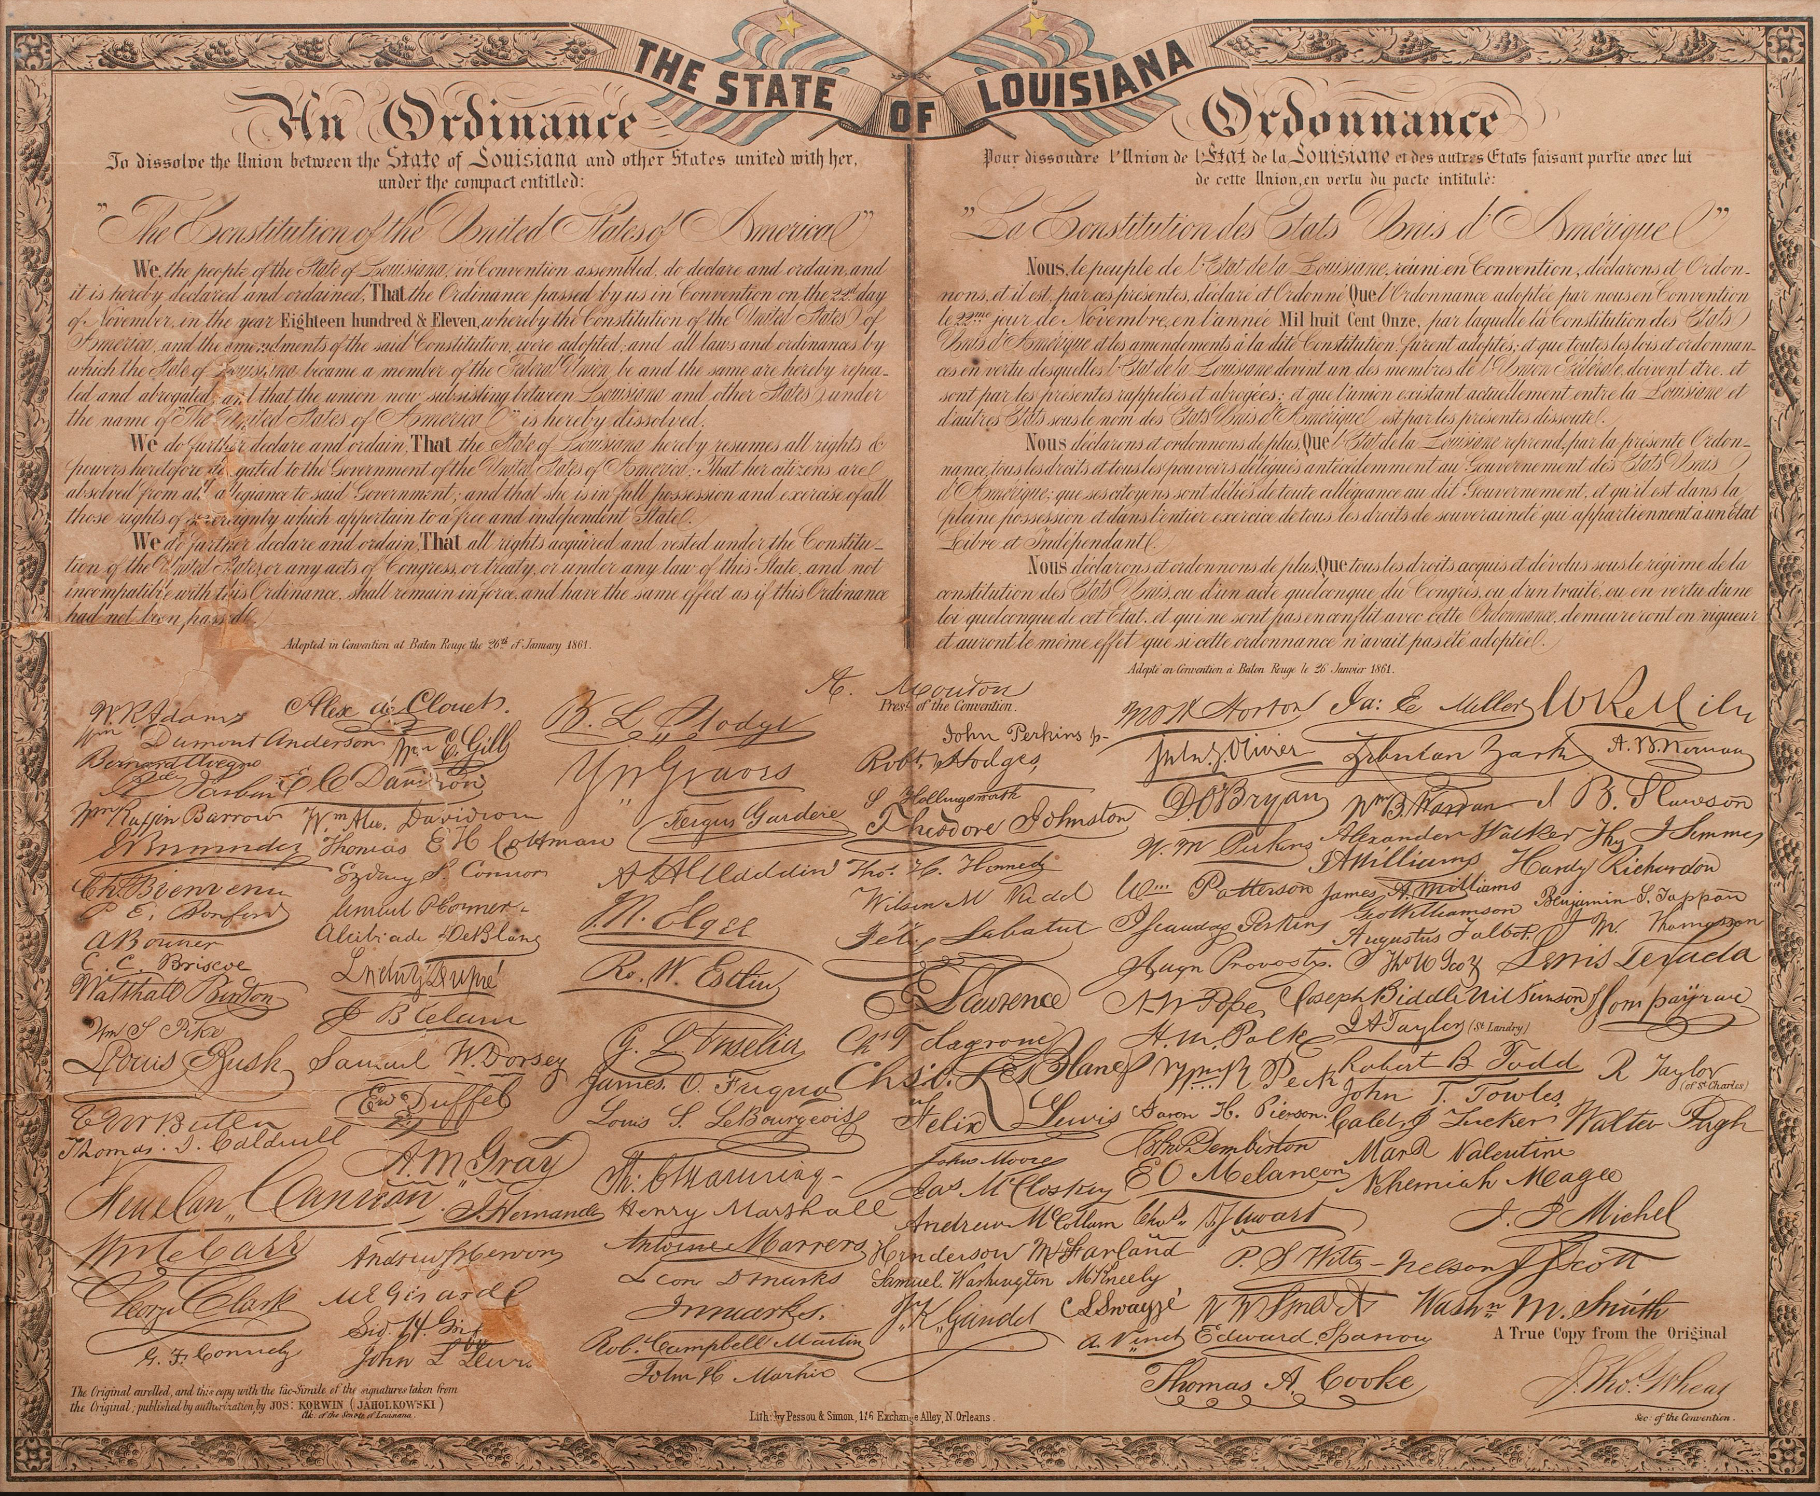 THE STATE OF LOUISIANA
An Ordinance
To dissolve the Union between the State of Louisiana and other States united with her,
under the compact entitled:
"The Constitution of the United States of America"
We, the people of the State of Louisiana, in Convention assembled, do declare and ordain, and
it is hereby declared and ordained, That the Ordinance passed by us in Convention on the 22d day
of November, in the year Eighteen hundred & Eleven, whereby the Constitution of the United States of
America, and the amendments of the said Constitution, were adopted, and all laws and ordinances by
which the State of Louisiana became a member of the Federal Union, be and the same are hereby repea-
led and abrogated, and that the union now subsisting between Louisiana and other States, under
the name of "The United States of America" is hereby dissolved.
We do further declare and ordain, That the State of Louisiana hereby resumes all rights &
powers heretofore delegated to the Government of the United States of America; That her citizens are
absolved from all allegiance to said Government; and that she is in full possession and exercise of all
those rights of sovereignty which appertain to a free and independent State.
We do further declare and ordain, That all rights acquired and vested under the Constitu-
tion of the United States, or any acts of Congress, or treaty, or under any law of this State, and not
incompatible with this Ordinance, shall remain in force, and have the same effect as if this Ordinance
had not been passed.
Adopted in Convention at Baton Rouge the 26th of January 1861.
Ordonnance
Pour dissoudre l'Union de l'État de la Louisiane et des autres Etats faisant partie avec lui
de cette Union, en vertu du pacte intitulé:
"La Constitution des Etats Unis d'Amérique"
Nous, le peuple de l'Etat de la Louisiane, réuni en Convention, déclarons et Ordon-
nons, et il est, par ces présentes, déclaré et Ordonné Que l'Ordonnance adoptée par nous en Convention
le 22me jour de Novembre, en l'année Mil huit Cent Onze, par laquelle la Constitution des Etats
Unis d'Amérique et les amendements à la dite Constitution, furent adoptés; et que toutes les lois et ordonnan-
ces en vertu desquelles l'Etat de la Louisiane devint un des membres de l'Union Fédérale, doivent être, et
sont par les présentes rappelées et abrogées; et que l'union existant actuellement entre la Louisiane et
d'autres Etats sous le nom des Etats Unis d'Amérique est par les présentes dissoute.
Nous déclarons et ordonnons de plus, Que l'Etat de la Louisiane reprend, par la présente Ordon-
nance, tous les droits et tous les pouvoirs délégués antécédemment au Gouvernement des Etats Unis
d'Amérique; que ses citoyens sont déliés de toute allégeance au dit Gouvernement, et qu'il est dans la
pleine possession et dans l'entier exercice de tous les droits de souveraineté qui appartiennent à un État
Libre et Indépendant.
Nous déclarons et ordonnons de plus, Que tous les droits acquis et dévolus sous le régime de la
constitution des Etats Unis, ou d'un acte quelconque du Congrès, ou d'un traité, ou en vertu d'une
loi quelconque de cet Etat, et qui ne sont pas en conflit avec cette Ordonnance, demeureront en vigueur
et auront le même effet que si cette ordonnance n'avait pas été adoptée.
Adopté en Convention à Baton Rouge le 26 Janvier 1861.
A. Mouton
Prest of the Convention.
W. R. Adams
Wm Dumont Anderson
Bernard Avegno
Barbin
Wm Ruffin Barrow
Ch. Bienvenu
P. E. Bonford
A Bonner
C. C. Briscoe
Walthall Burton
Wm S Pike
Louis Bush
E G W Butler
Thomas J. Caldwell
Cannon
Wm C Carr
George Clark
G. F. Connely
Alex de Clouet.
Wm E. Gill
C C Davidson
Wm Alex. Davidson
Thomas E H Cottman
Sydney S. Connor
Alcibiade DeBlanc
Lucius Dupré
J B Elam
Samuel W. Dorsey
Ed Duffel
A. M. Gray
J. Hernandez
Andrew S Herron
M E Girard
John L Lewis
B. L. Hodge
Y W Graves
Fergus Gardere
J. K. Elgee
Ro. W. Estlin
G. L. Fuselier
James O. Fuqua
Louis S. LeBourgeois
Th: C Manning
Henry Marshall
Antoine Marrero
Leon D Marks
I n marks.
Rob. Campbell Martin
John H Martin
John Perkins jr
Robt W Hodges
S Hollingsworth
Theodore Johnston
Thos. H. Kennedy
Felix Labatut
E Lawrence
Ch. T. Lagroue
Chs. D. L. LeBlanc
Felix Lewis
John Moore
Jas McCloskey
Andrew McCollam
Henderson McFarland
Samuel Washington McKneely
J. K. Gaudet
M O H Norton
Jules G. Olivier
D O'Bryan
W. M Perkins
Wm Patterson
Perkins
Hugn Provosty.
A. W Pope
H. M. Polk
Wm R Peck
Aaron H. Pierson
John Pemberton
E O Melancon
Chas D Stuart
C L Swayzé
A. Vinet
Edward Sparrow
Thomas A. Cooke
Ja: E Miller
Zebulon York
Wm B. Warren
Alexander Walker
J A Williams
James A. Williams
Geo Williamson
Augustus Talbot.
Joseph Biddle Wilkinson
J A Taylor (St Landry)
Robert B Todd
John T. Towles
Caleb J Tucker
Mark Valentine
Nehemiah Meagee
P. S Wiltz
W W Smart
W R Miles
A. B. Nerman
J B. Slawson
Thy J. Semmes
Hardy Richardson
Benjamin S. Tappan
J M. Thomasson
Lewis Texada
R Taylor
(of St Charles)
Walter Pugh
J. J Michel
Nelson J Scott
Washn M. Smith
A True Copy from the Original
J. Tho. Wheat
Sec: of the Convention.
The Original enrolled, and this copy with the fac-Simile of the signatures taken from
the Original; published by authorization, by JOS: KORWIN (JAHOLKOWSKI)
Clk: of the Senate of Louisiana.
Lith: by Pessou & Simon, 116 Exchange Alley, N. Orleans.